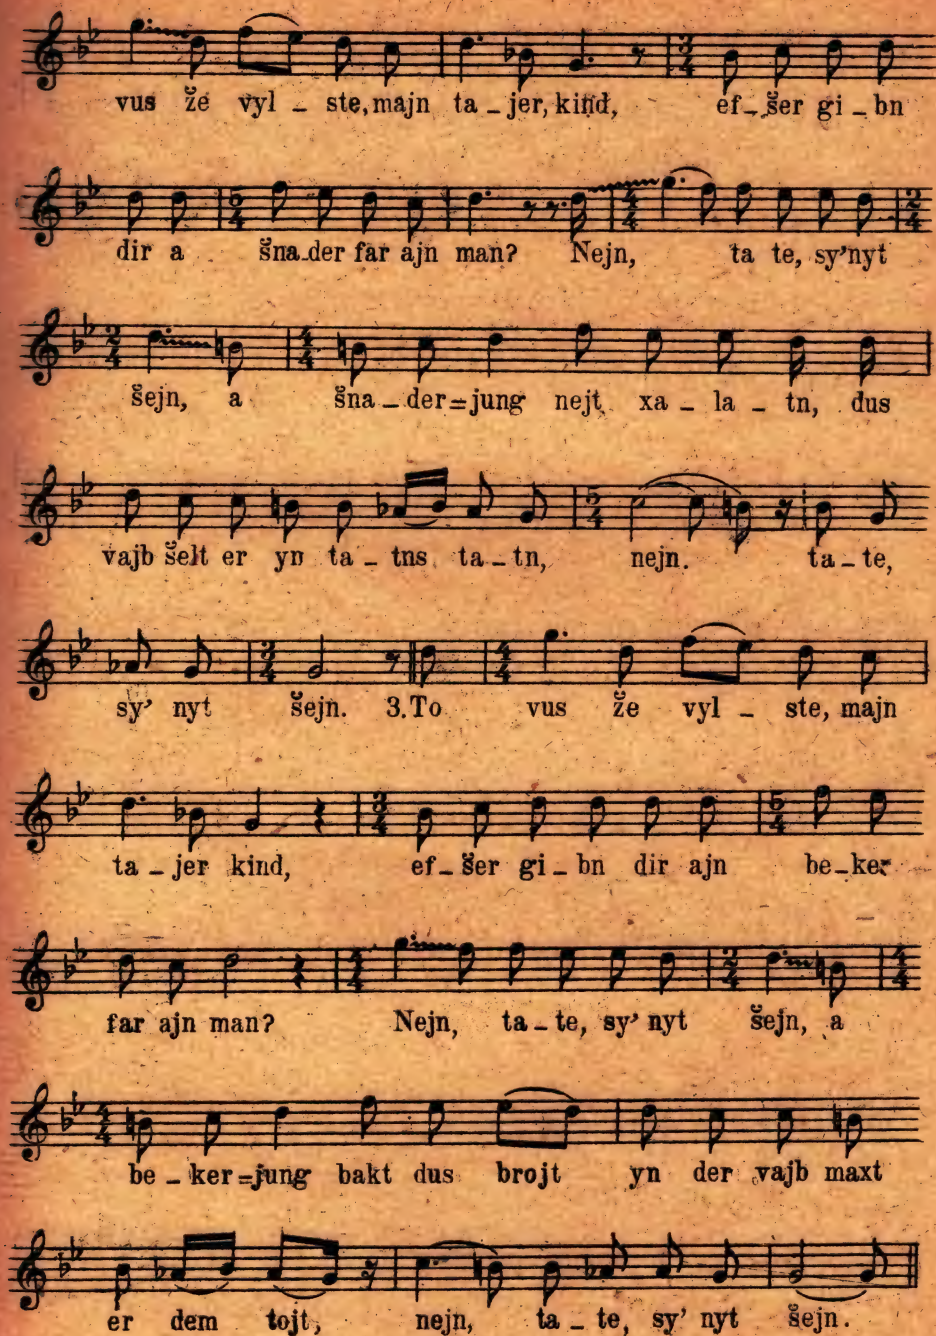 vus že vyl – ste, majn ta – jer, kind, ef – šer gi – bn
dir a šna – der far ajn man? Nejn, ta te, sy'nyt
šejn, a šna – der=jung nejt xa – la – tn, dus
vajb šelt er yn ta – tns ta – tn, nejn. ta – te,
sy' nyt šejn. 3. To vus že vyl – ste, majn
ta – jer kind, ef – šer gi – bn dir ajn be – ker
far ajn man? Nejn, ta – te, sy' nyt šejn, a
be – ker=jung bakt dus brojt yn der vajb maxt
er dem tojt, nejn, ta – te, sy' nyt šejn.